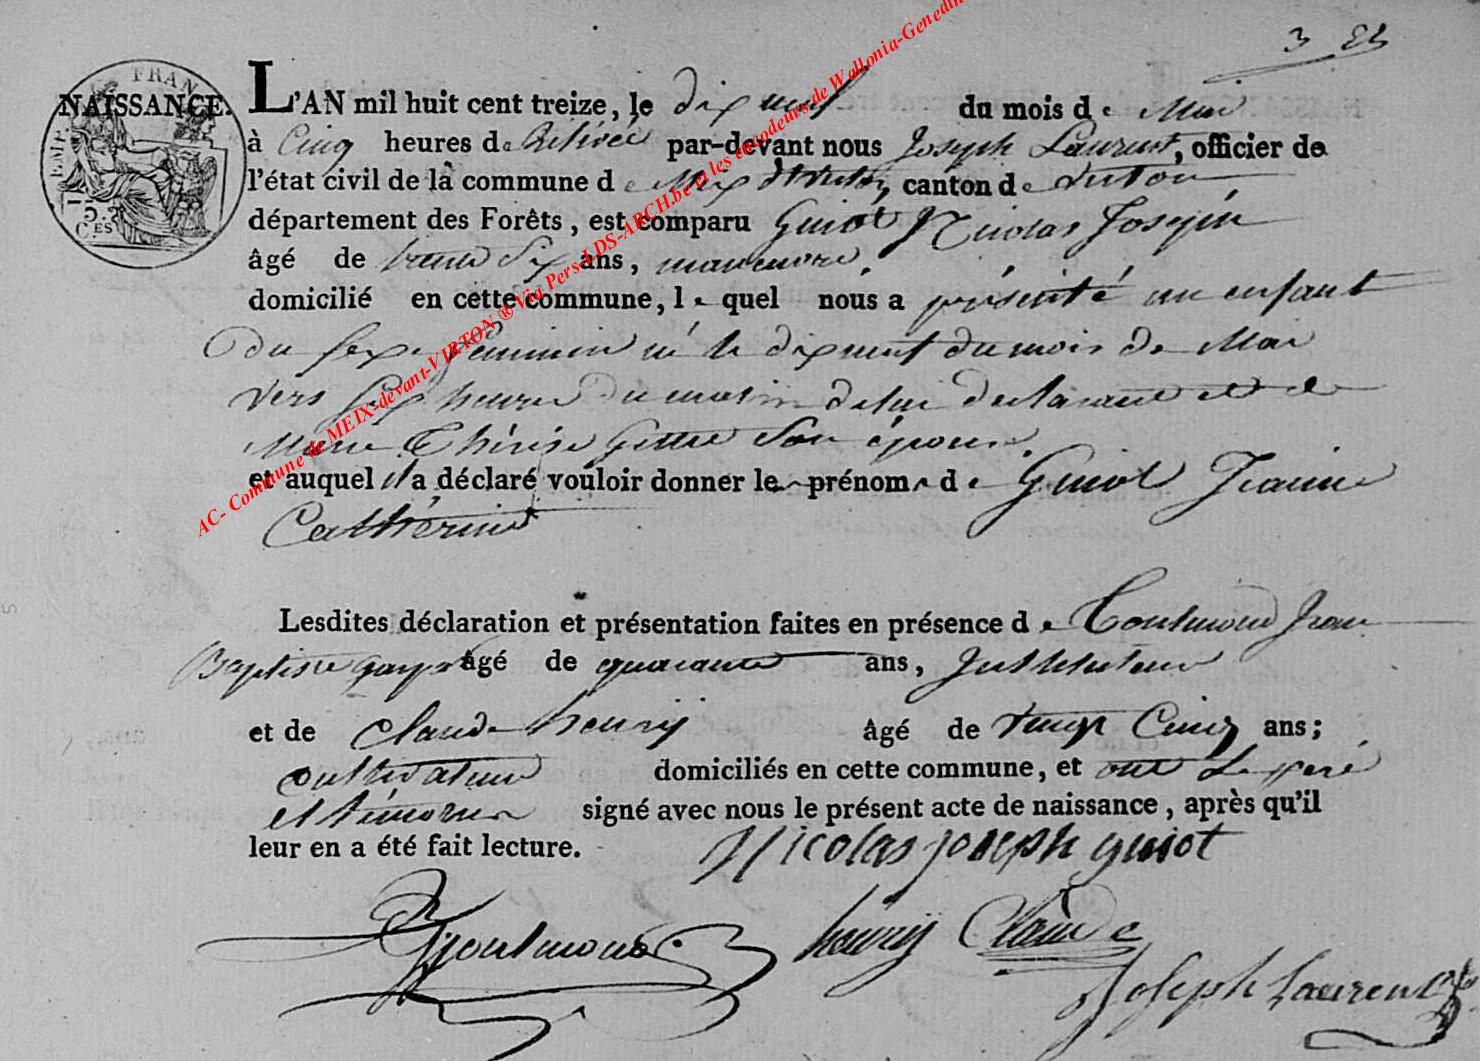 3 83
FRAN
NAISSANCE.
EMP
CES
L'AN mil huit cent treize, le dix neuf du mois de Mai
à Cinq heures de Relivée par-devant nous Joseph Laurent, officier de
l'état civil de la commune de Meix dt Virton, canton de virton
département des Forêts, est comparu Guiot Nicolas Joseph
âgé de trente Six ans, manœuvre,
domicilié en cette commune, le quel nous a présenté un enfant
Du sexe féminin né le dix neuf du mois de Mai
vers Six heures du matin de lui declarant et de
Marie Thérèse son épouse,
et auquel il a déclaré vouloir donner les prénoms de Guiot Jeanne
Cathérine
Lesdites déclaration et présentation faites en présence de Jean
Baptiste âgé de quarante ans, Instituteur
et de Claude henrij âgé de vingt Cinq ans;
cultivateur domiciliés en cette commune, et ont Le peré
et témoins signé avec nous le présent acte de naissance, après qu'il
leur en a été fait lecture. Nicolas joseph guiot
henrij Claude
Joseph Laurent
AC- Commune de MEIX-devant-VIRTON ® Via Pers-LDS-ARCH.be et les encodeurs de Wallonia-Genedin